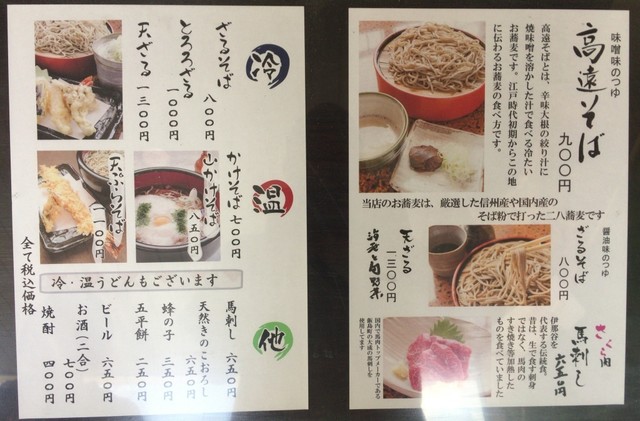 味噌味のつゆ
高遠そば
九〇〇円
高遠そばとは、辛味大根の絞り汁に
焼味噌を溶かした汁で食べる冷たい
お蕎麦です。江戸時代初期からこの地
に伝わるお蕎麦の食べ方です。
当店のお蕎麦は、厳選した信州産や国内産の
そば粉で打った二八蕎麦です
醤油味のつゆ
ざるそば
八〇〇円
天ざる
一三〇〇円
海老と旬野菜
さくら肉
馬刺し
六五〇円
伊那谷を
代表する伝統食。
昔は、生で食す刺身
ではなく、馬肉の
すき焼き等加熱した
ものを食べていました
国内で馬肉トップメーカーである
飯島町の大成の馬刺しを
使用してます
冷
ざるそば 八〇〇円
とろろざる 一〇〇〇円
天ざる 一三〇〇円
温
かけそば 七〇〇円
山かけそば 八五〇円
天ぷらそば 一一〇〇円
冷・温うどんもございます
他
馬刺し 六五〇円
天然きのこおろし 六五〇円
蜂の子 三五〇円
五平餅 二五〇円
ビール 六五〇円
お酒(二合) 七〇〇円
焼酎 四〇〇円
全て税込価格